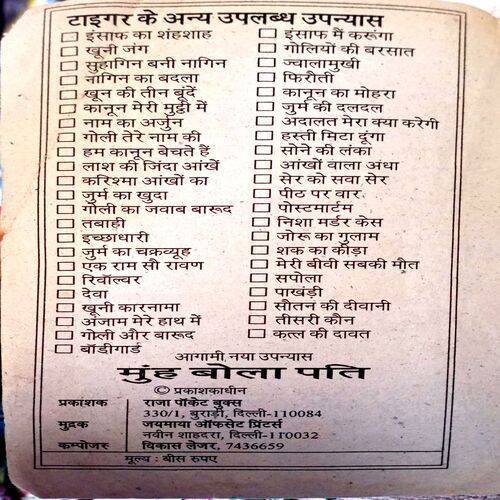 टाइगर के अन्य उपलब्ध उपन्यास
इंसाफ का शंहशाह
खूनी जंग
सुहागिन बनी नागिन
नागिन का बदला
खून की तीन बूंदें
कानून मेरी मुट्ठी में
नाम का अर्जुन
गोली तेरे नाम की
हम कानून बेचते हैं
लाश की जिंदा आंखें
करिश्मा आंखों का
जुर्म का खुदा
गोली का जवाब बारूद
तबाही
इच्छाधारी
जुर्म का चक्रव्यूह
एक राम सौ रावण
रिवॉल्वर
देवा
खूनी कारनामा
अंजाम मेरे हाथ में
गोली और बारूद
बॉडीगार्ड
इंसाफ मैं करूंगा
गोलियों की बरसात
ज्वालामुखी
फिरौती
कानून का मोहरा
जुर्म की दलदल
अदालत मेरा क्या करेगी
हस्ती मिटा दूंगा
सोने की लंका
आंखों वाला अंधा
सेर को सवा सेर
पीठ पर वार
पोस्टमार्टम
निशा मर्डर केस
जोरू का गुलाम
शक का कीड़ा
मेरी बीवी सबकी मौत
सपोला
पाखंड़ी
सौतन की दीवानी
तीसरी कौन
कत्ल की दावत
आगामी नया उपन्यास
मुंह बोला पति
© प्रकाशकाधीन
प्रकाशक राजा पॉकेट बुक्स
330/1, बुराड़ी, दिल्ली-110084
मुद्रक जयमाया ऑफसेट प्रिंटर्स
नवीन शाहदरा, दिल्ली-110032
कम्पोजर विकास लेजर, 7436659
मूल्य : बीस रुपए